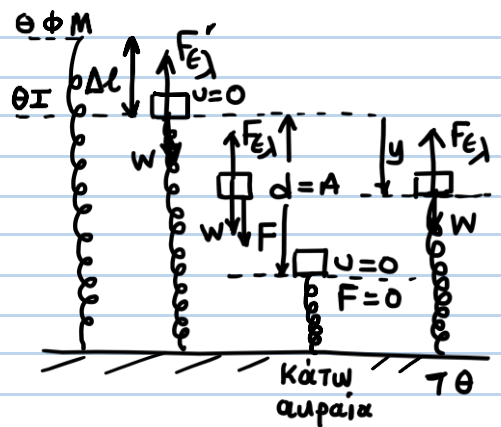 ΘΦΜ
Δℓ
Fελ'
ΘΙ
υ=0
W
Fελ
y
Fελ
d=A
W
F
W
υ=0
F=0
κάτω
ακραία
ΤΘ